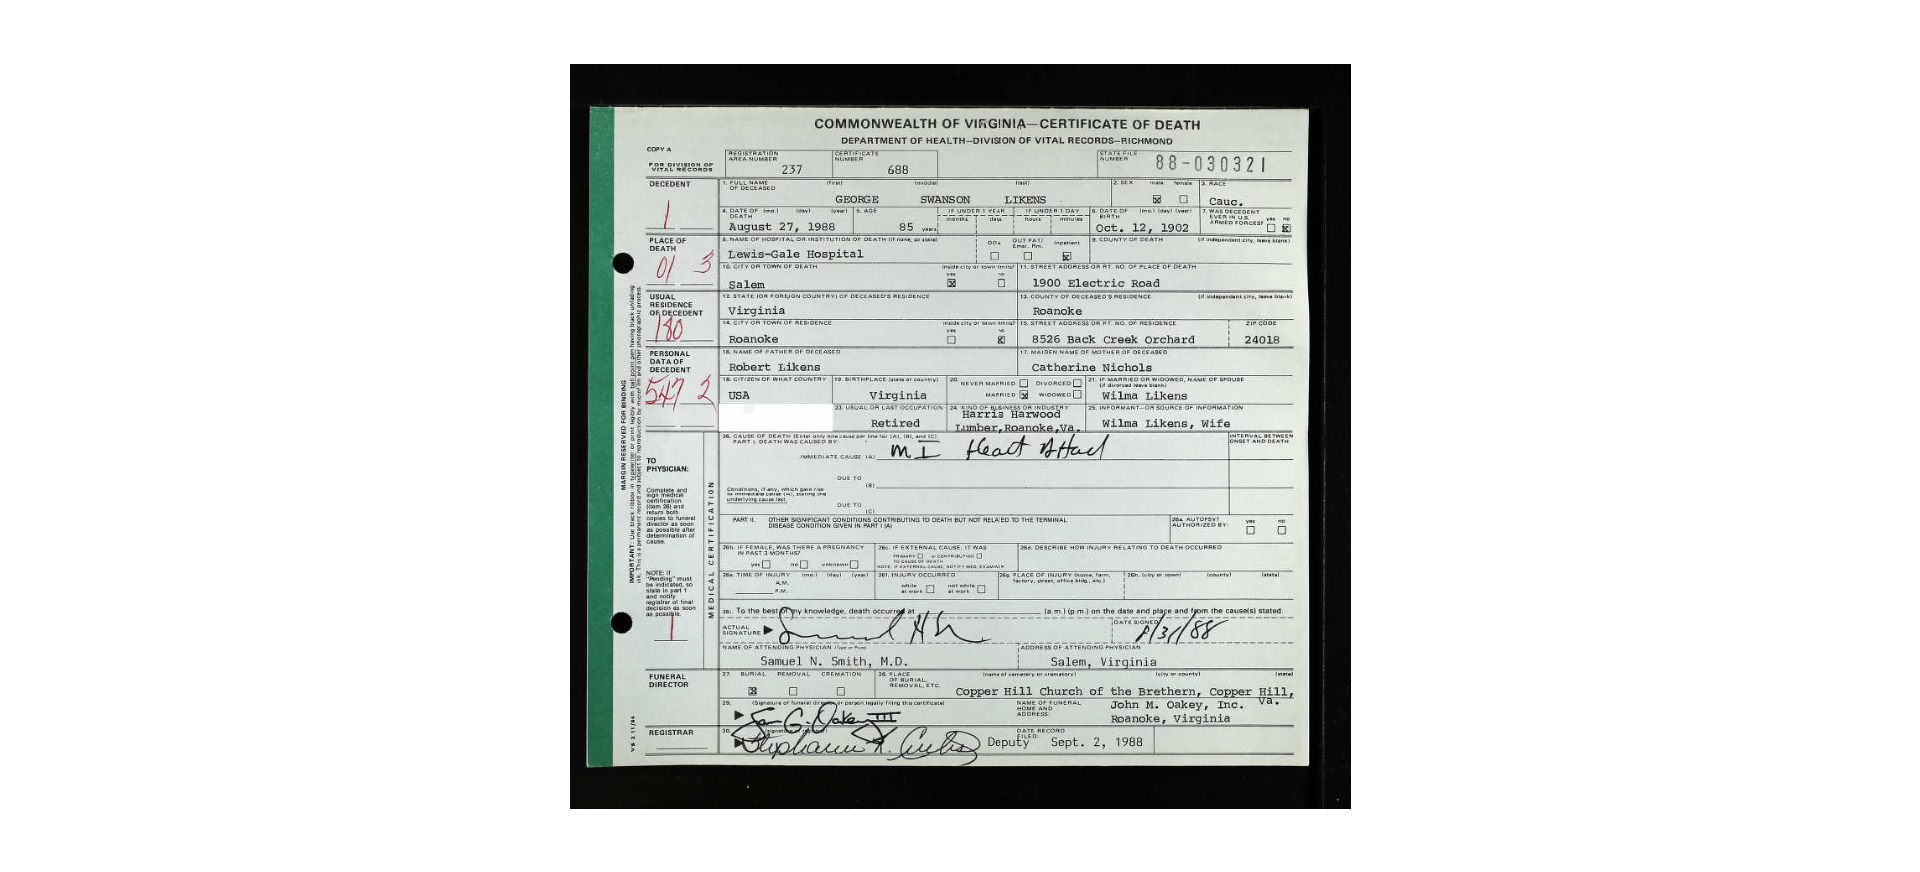 COMMONWEALTH OF VIRGINIA—CERTIFICATE OF DEATH
DEPARTMENT OF HEALTH—DIVISION OF VITAL RECORDS—RICHMOND
COPY A
FOR DIVISION OF VITAL RECORDS
REGISTRATION AREA NUMBER 237
CERTIFICATE NUMBER 688
STATE FILE NUMBER 88-030321
DECEDENT
1
1. FULL NAME OF DECEASED (first) (middle) (last)
GEORGE SWANSON LIKENS
2. SEX male ☒ female ☐
3. RACE
Cauc.
4. DATE OF DEATH (mo.) (day) (year)
August 27, 1988
5. AGE
85 years
IF UNDER 1 YEAR months days
IF UNDER 1 DAY hours minutes
6. DATE OF BIRTH (mo.) (day) (year)
Oct. 12, 1902
7. WAS DECEDENT EVER IN U.S. ARMED FORCES? yes ☐ no ☒
PLACE OF DEATH
01 3
8. NAME OF HOSPITAL OR INSTITUTION OF DEATH (if none, so state)
Lewis-Gale Hospital
DOA ☐ OUT PAT/ Emer. Rm. ☐ Inpatient ☒
9. COUNTY OF DEATH (if independent city, leave blank)
10. CITY OR TOWN OF DEATH
Salem
inside city or town limits? yes ☒ no ☐
11. STREET ADDRESS OR RT. NO. OF PLACE OF DEATH
1900 Electric Road
USUAL RESIDENCE OF DECEDENT
180
12. STATE (OR FOREIGN COUNTRY) OF DECEASED'S RESIDENCE
Virginia
13. COUNTY OF DECEASED'S RESIDENCE (if independent city, leave blank)
Roanoke
14. CITY OR TOWN OF RESIDENCE
Roanoke
inside city or town limits? yes ☐ no ☒
15. STREET ADDRESS OR RT. NO. OF RESIDENCE
8526 Back Creek Orchard
ZIP CODE
24018
PERSONAL DATA OF DECEDENT
547 2
16. NAME OF FATHER OF DECEASED
Robert Likens
17. MAIDEN NAME OF MOTHER OF DECEASED
Catherine Nichols
18. CITIZEN OF WHAT COUNTRY
USA
19. BIRTHPLACE (state or country)
Virginia
20. NEVER MARRIED ☐ DIVORCED ☐
MARRIED ☒ WIDOWED ☐
21. IF MARRIED OR WIDOWED, NAME OF SPOUSE (if divorced leave blank)
Wilma Likens
23. USUAL OR LAST OCCUPATION
Retired
24. KIND OF BUSINESS OR INDUSTRY
Harris Harwood
Lumber,Roanoke,Va.
25. INFORMANT—OR SOURCE OF INFORMATION
Wilma Likens, Wife
MARGIN RESERVED FOR BINDING
TO PHYSICIAN:
Complete and
sign medical
certification
(item 26) and
return both
copies to funeral
director as soon
as possible after
determination of
cause.
NOTE: If
"Pending" must
be indicated, so
state in part 1
and notify
registrar of final
decision as soon
as possible.
1
MEDICAL CERTIFICATION
26. CAUSE OF DEATH (Enter only one cause per line for (A), (B), and (C).
PART I. DEATH WAS CAUSED BY:
INTERVAL BETWEEN ONSET AND DEATH
IMMEDIATE CAUSE (A) MI Heart Attack
DUE TO
(B)
Conditions, if any, which gave rise
to immediate cause (A), stating the
underlying cause last.
DUE TO
(C)
PART II. OTHER SIGNIFICANT CONDITIONS CONTRIBUTING TO DEATH BUT NOT RELATED TO THE TERMINAL
DISEASE CONDITION GIVEN IN PART I (A)
26a. AUTOPSY? AUTHORIZED BY: yes ☐ no ☐
26b. IF FEMALE, WAS THERE A PREGNANCY IN PAST 3 MONTHS?
yes ☐ no ☐ unknown ☐
26c. IF EXTERNAL CAUSE, IT WAS
PRIMARY ☐ or CONTRIBUTING ☐
TO CAUSE OF DEATH
NOTE: IF EXTERNAL CAUSE, NOTIFY MED. EXAMINER
26d. DESCRIBE HOW INJURY RELATING TO DEATH OCCURRED
26e. TIME OF INJURY (mo.) (day) (year)
A.M.
P.M.
26f. INJURY OCCURRED
while at work ☐ not while at work ☐
26g. PLACE OF INJURY (home, farm, factory, street, office bldg., etc.)
26h. (city or town) (county) (state)
26i. To the best of my knowledge, death occurred at (a.m.) (p.m.) on the date and place and from the cause(s) stated.
ACTUAL SIGNATURE
DATE SIGNED
8/31/88
NAME OF ATTENDING PHYSICIAN (Type or Print)
Samuel N. Smith, M.D.
ADDRESS OF ATTENDING PHYSICIAN
Salem, Virginia
FUNERAL DIRECTOR
27. BURIAL ☒ REMOVAL ☐ CREMATION ☐
28. PLACE OF BURIAL, REMOVAL, ETC. (name of cemetery or crematory) (city or county) (state)
Copper Hill Church of the Brethern, Copper Hill, Va.
29. (Signature of funeral director or person legally filing this certificate)
Sam G. Oakey III
NAME OF FUNERAL HOME AND ADDRESS:
John M. Oakey, Inc.
Roanoke, Virginia
REGISTRAR
30. (signature of registrar)
Deputy
DATE RECORD FILED:
Sept. 2, 1988
VS 2 11/84